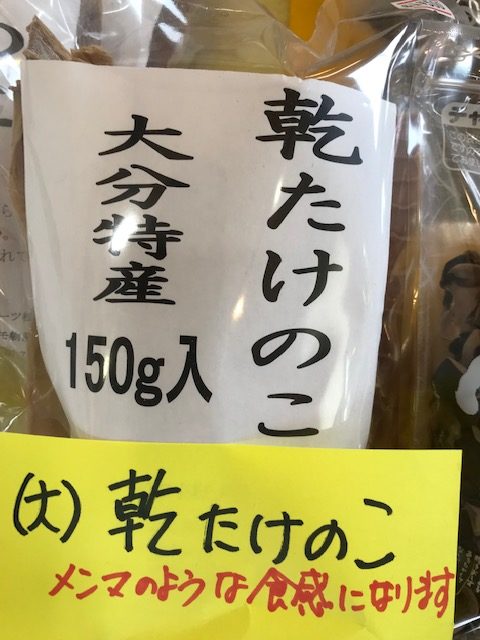 乾たけのこ
大分特産
150g入
(大)乾たけのこ
メンマのような食感になります
チャ